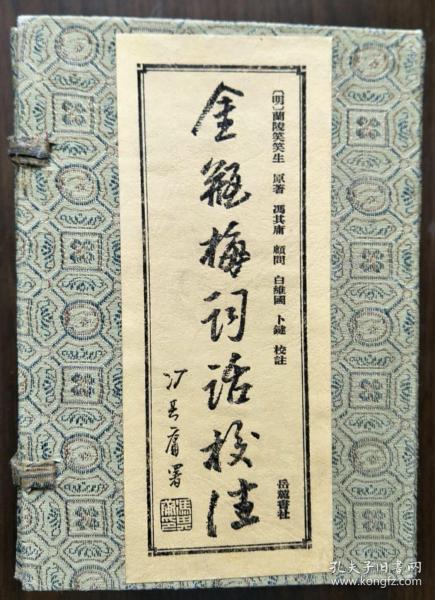 〔明〕蘭陵笑笑生 原著 馮其庸 顧問 白維國 卜鍵 校註
岳麓書社
金瓶梅詞话校注
冯其庸署
孔夫子旧书网
www.kongfz.com